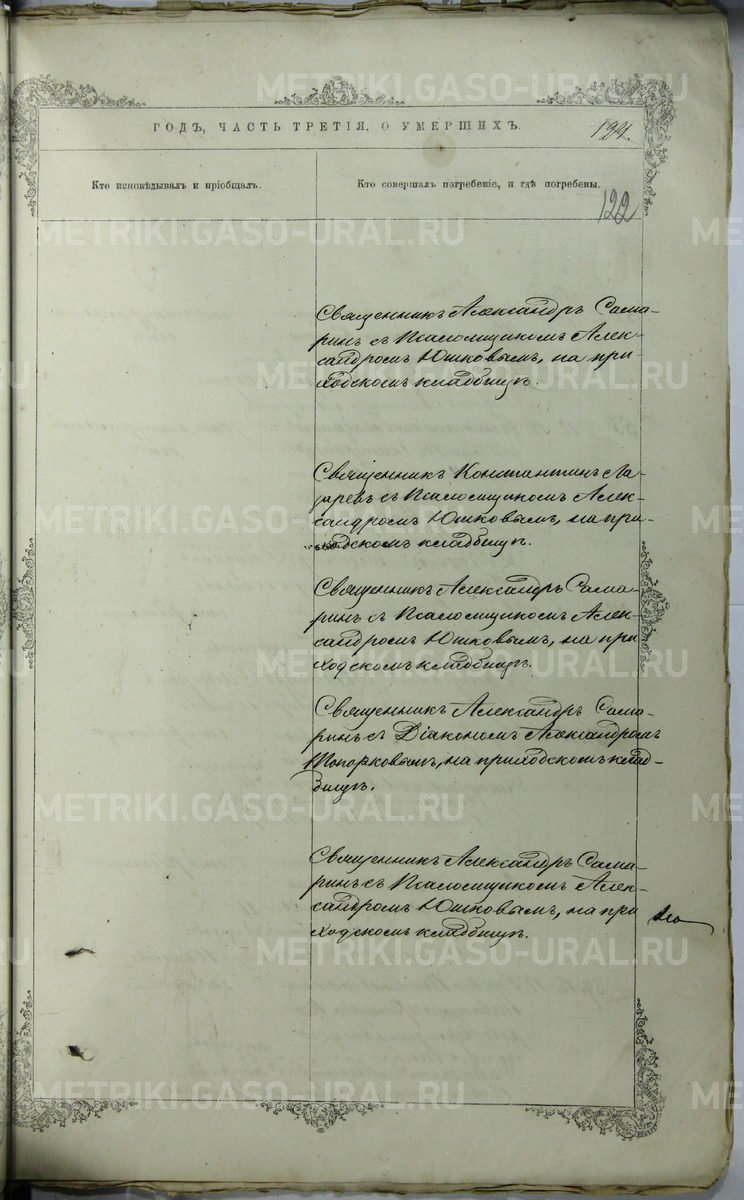 METRIKI.GASO-URAL.RU
ГОДЪ, ЧАСТЬ ТРЕТІЯ, О УМЕРШИХЪ.
124.
Кто исповѣдывалъ и пріобщалъ.
Кто совершалъ погребеніе, и гдѣ погребены.
122
METRIKI.GASO-URAL.RU
Священникъ Александръ Сама-
ринъ съ Псаломщикомъ Алек-
сандромъ Юшковымъ, на при-
ходскомъ кладбищѣ.
METRIKI.GASO-URAL.RU
Священникъ Константинъ Ла-
заревъ съ Псаломщикомъ Алек-
сандромъ Юшковымъ, на при-
ходскомъ кладбищѣ.
METRIKI.GASO-URAL.RU
Священникъ Александръ Сама-
ринъ съ Псаломщикомъ Алек-
сандромъ Юшковымъ, на при
ходскомъ кладбищѣ.
METRIKI.GASO-URAL.RU
Священникъ Александръ Сама-
ринъ съ Діакономъ Александромъ
Топорковымъ, на приходскомъ клад-
бищѣ.
METRIKI.GASO-URAL.RU
Священникъ Александръ Сама-
ринъ съ Псаломщикомъ Алек-
сандромъ Юшковымъ, на при
ходскомъ кладбищѣ.
METRIKI.GASO-URAL.RU
METRIKI.GASO-URAL.RU